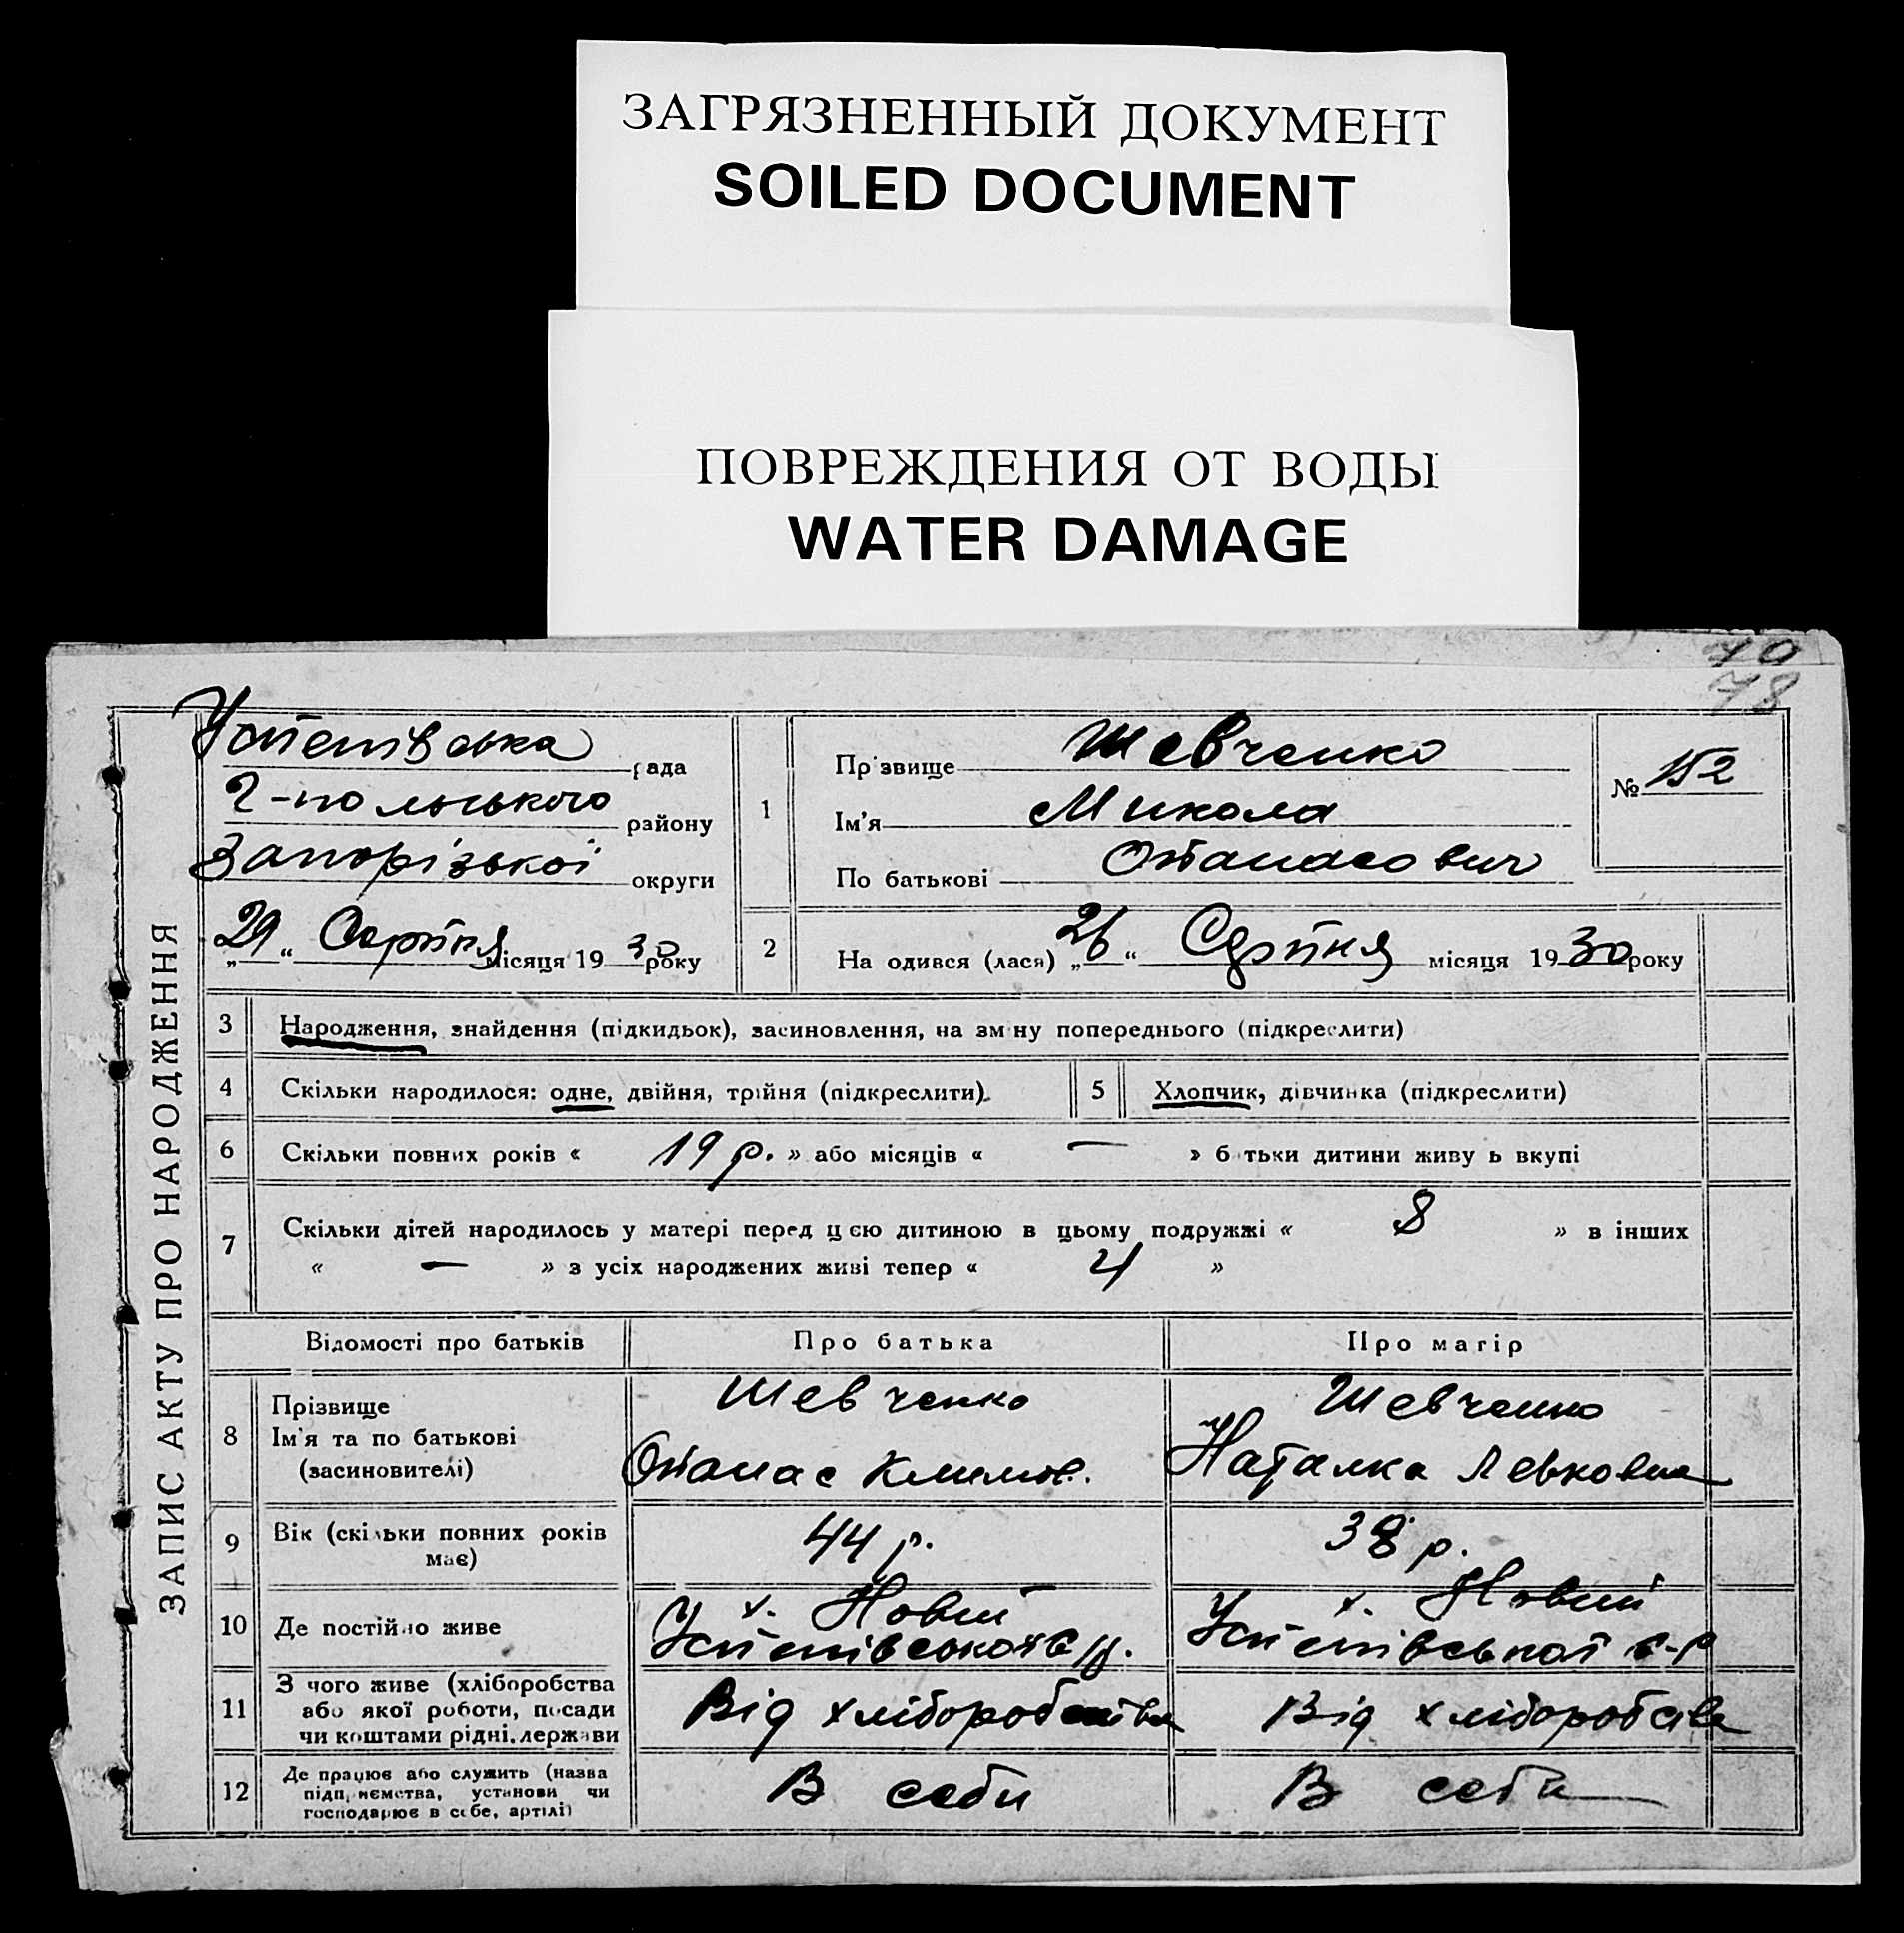 ЗАГРЯЗНЕННЫЙ ДОКУМЕНТ
SOILED DOCUMENT
ПОВРЕЖДЕНИЯ ОТ ВОДЫ
WATER DAMAGE
78
ЗАПИС АКТУ ПРО НАРОДЖЕННЯ
Успенівська рада
Г-польського району
Запорізької округи
„29“ Серпня місяця 1930 року
1
Прізвище Шевченко
Ім'я Микола
По батькові Опанасович
№ 152
2
На одився (лася) „26“ Серпня місяця 1930 року
3 Народження, знайдення (підкидьок), засиновлення, на зміну попереднього (підкреслити)
4 Скільки народилося: одне, двійня, трійня (підкреслити).
5 Хлопчик, дівчинка (підкреслити)
6 Скільки повних років « 19 р. » або місяців « — » б тьки дитини живу ь вкупі
7 Скільки дітей народилось у матері перед цєю дитиною в цьому подружжі « 8 » в інших
« — » з усіх народжених живі тепер « 4 »
Відомості про батьків Про батька Про матір
8 Прізвище Шевченко Шевченко
Ім'я та по батькові
(засиновителі) Опанас Климов. Наталка Левковна
9 Вік (скільки повних років 44 р. 38 р.
має)
10 Де постійно живе х. Новий х. Новий
Успенівської Успенівської с-р
11 З чого живе (хліборобства
або якої роботи, посади Від хліборобства Від хліборобства
чи коштами рідні, держави
12 Де працює або служить (назва
підприємства, установи чи В себе В себе
господарює в себе, артілі)